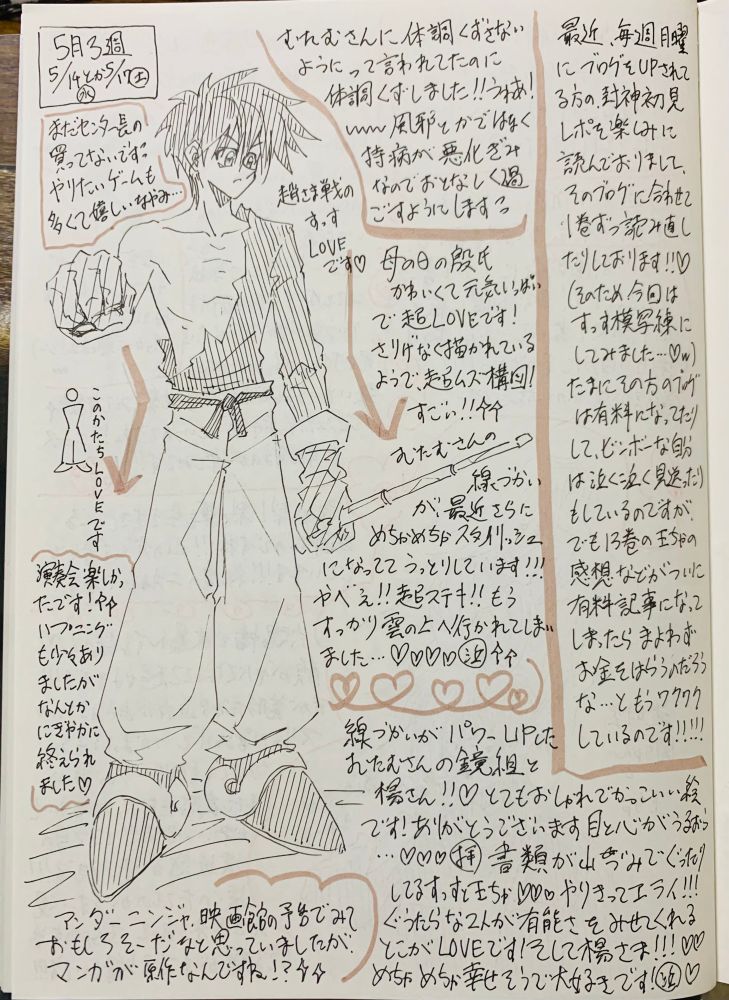 5月3週
5/14とか5/17(土)
(水)
まだセンター長の
買ってないですっ
やりたいゲームも
多くて嬉しいなやみ…
むたむさんに体調くずさない
ようにって言われてたのに
体調くずしました!!うわあ!
風邪とかではなく
持病が悪化ぎみ
なのでおとなしく過
ごすようにしますっ
趙さま戦の
すっす
LOVE
です♡
母の日の殷氏
かわいくて元気いっぱい
で超LOVEです!
さりげなく描かれている
ようで、超ムズ構図!
すごい!!
むたむさんの
線づかい
が、最近さらに
めちゃめちゃスタイリッシュ
になっててうっとりしています!!!
やべぇ!!超ステキ!!もう
すっかり雲の上へ行かれてしまい
ました…♡♡♡♡
最近、毎週月曜
にブログをUPされて
る方の、封神初見
レポを楽しみに
読んでおりまして、
そのブログに合わせて
1巻ずつ読み直し
たりしております!!♡
(そのため今回は
すっす模写練に
してみました…♡w)
たまにその方のブログ
は有料になってたり
して、ビンボーな自分
は泣く泣く見送ったり
もしているのですが、
でも13巻の王ちゃの
感想などがついに
有料記事になって
しまったらまよわず
お金をはらうんだろう
な…ともうワクワク
しているのです!!!!!
このかたちLOVEです
演奏会楽しかっ
たです!
ハプニング
も少々あり
ましたが
なんとか
にぎやかに
終えられ
ました♡
線づかいがパワーUPした
むたむさんの鏡組と
楊さん!!♡とてもおしゃれでかっこいい絵
です!ありがとうございます目と心がうるおう
…♡♡♡(拝) 書類が山づみでぐったり
してるすっすと王ちゃ♡♡♡やりきってエライ!!!
ぐうたらな2人が有能さをみせてくれる
とこがLOVEです!そして楊さま!!!♡♡
めちゃめちゃ幸せそうで大好きです!♡
アンダーニンジャ、映画館の予告でみて
おもしろそーだなと思っていましたが、
マンガが原作なんですね!?